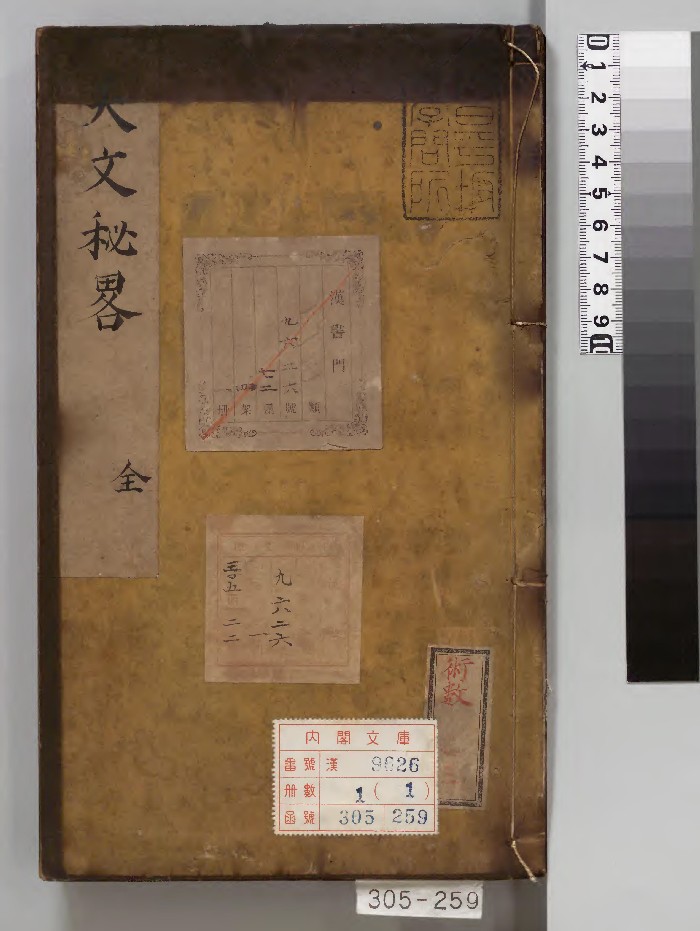 天文秘畧
全
漢書門
類
九六二六號
七二函
架
一冊
九六二六
一
術數
内閣文庫
番號 漢 9626
册數 1 (1)
函號 305 259
305-259
0 1 2 3 4 5 6 7 8 9 10